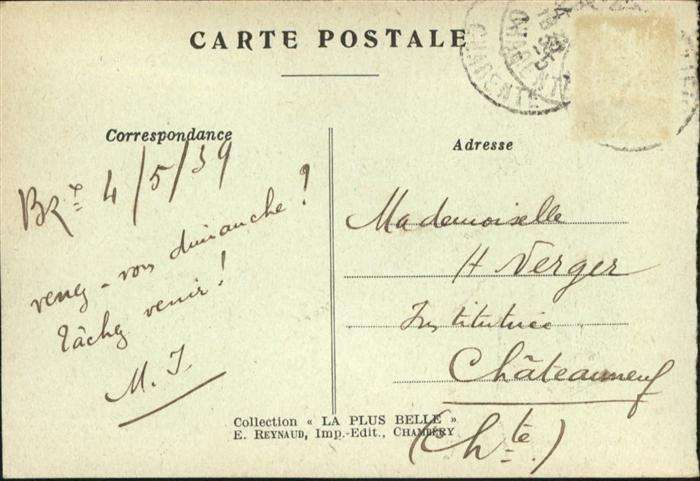 CARTE POSTALE
CHARENTE
CHARENTE
Correspondance
Adresse
4/5/39
venez-vous dimanche!
tâchez venir!
M. J.
Mademoiselle
H Verger
Institutrice
Châteauneuf
(Chte.)
Collection « LA PLUS BELLE »
E. REYNAUD, Imp.-Edit., CHAMBÉRY